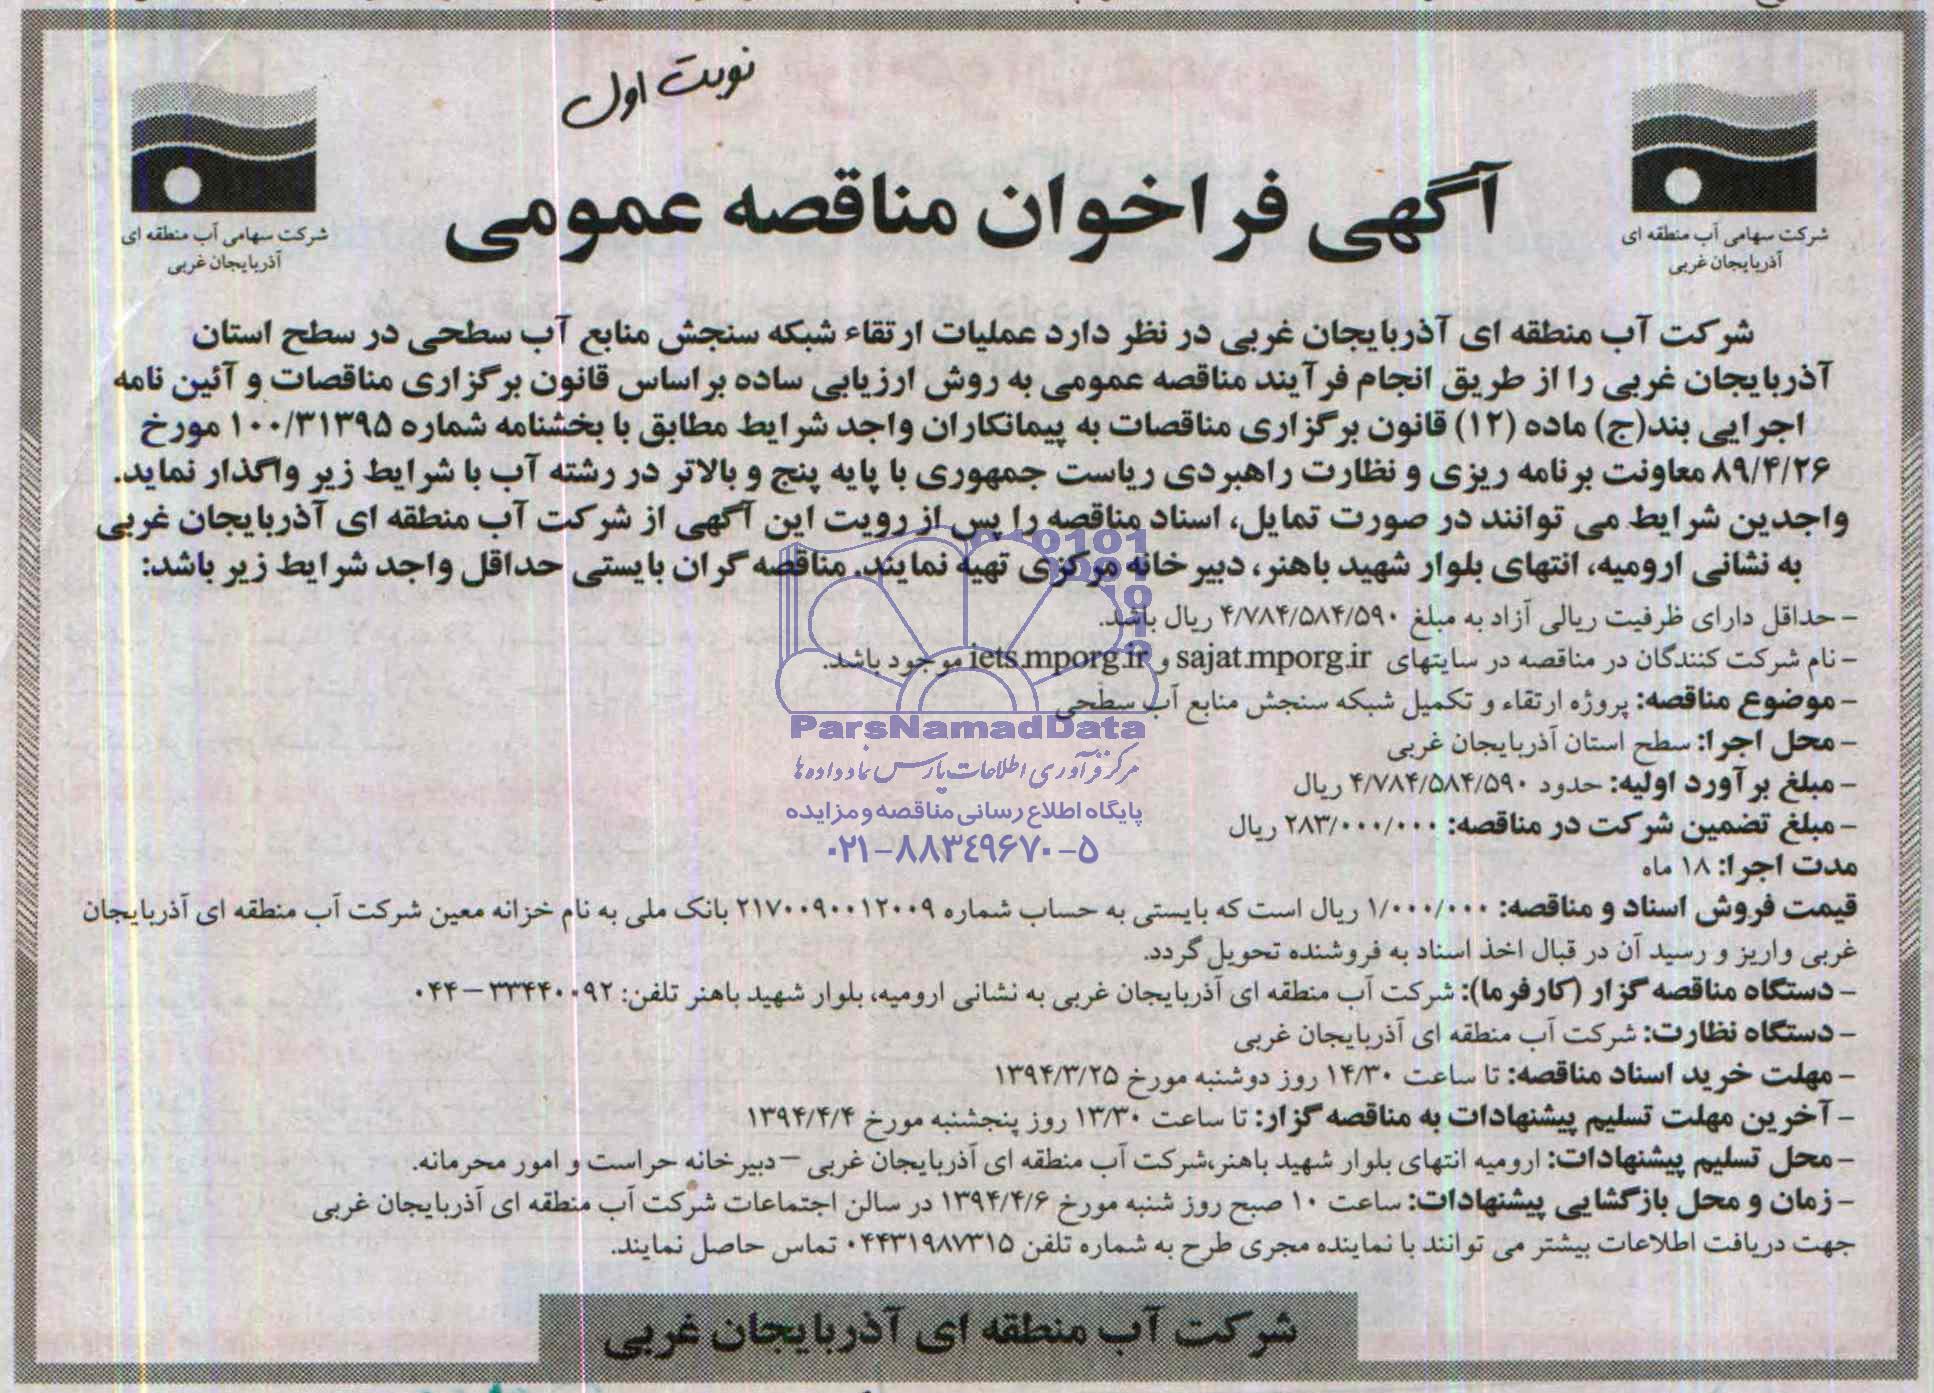 نوبت اول
شرکت سهامی آب منطقه ای
آذربایجان غربی
آگهی فراخوان مناقصه عمومی
شرکت سهامی آب منطقه ای
آذربایجان غربی
شرکت آب منطقه ای آذربایجان غربی در نظر دارد عملیات ارتقاء شبکه سنجش منابع آب سطحی در سطح استان
آذربایجان غربی را از طریق انجام فرآیند مناقصه عمومی به روش ارزیابی ساده براساس قانون برگزاری مناقصات و آئین نامه
اجرایی بند(ج) ماده (۱۲) قانون برگزاری مناقصات به پیمانکاران واجد شرایط مطابق با بخشنامه شماره ۱۰۰/۳۱۳۹۵ مورخ
۸۹/۴/۲۶ معاونت برنامه ریزی و نظارت راهبردی ریاست جمهوری با پایه پنج و بالاتر در رشته آب با شرایط زیر واگذار نماید.
واجدین شرایط می توانند در صورت تمایل، اسناد مناقصه را پس از رویت این آگهی از شرکت آب منطقه ای آذربایجان غربی
به نشانی ارومیه، انتهای بلوار شهید باهنر، دبیرخانه مرکزی تهیه نمایند. مناقصه گران بایستی حداقل واجد شرایط زیر باشد:
- حداقل دارای ظرفیت ریالی آزاد به مبلغ ۴/۷۸۴/۵۸۴/۵۹۰ ریال باشد.
- نام شرکت کنندگان در مناقصه در سایتهای sajat.mporg.ir و iets.mporg.ir موجود باشد.
- موضوع مناقصه: پروژه ارتقاء و تکمیل شبکه سنجش منابع آب سطحی
- محل اجرا: سطح استان آذربایجان غربی
- مبلغ برآورد اولیه: حدود ۴/۷۸۴/۵۸۴/۵۹۰ ریال
- مبلغ تضمین شرکت در مناقصه: ۲۸۳/۰۰۰/۰۰۰ ریال
مدت اجرا: ۱۸ ماه
قیمت فروش اسناد و مناقصه: ۱/۰۰۰/۰۰۰ ریال است که بایستی به حساب شماره ۲۱۷۰۰۹۰۰۱۲۰۰۹ بانک ملی به نام خزانه معین شرکت آب منطقه ای آذربایجان
غربی واریز و رسید آن در قبال اخذ اسناد به فروشنده تحویل گردد.
- دستگاه مناقصه گزار (کارفرما): شرکت آب منطقه ای آذربایجان غربی به نشانی ارومیه، بلوار شهید باهنر تلفن: ۳۳۴۴۰۰۹۲-۰۴۴
- دستگاه نظارت: شرکت آب منطقه ای آذربایجان غربی
- مهلت خرید اسناد مناقصه: تا ساعت ۱۴/۳۰ روز دوشنبه مورخ ۱۳۹۴/۳/۲۵
- آخرین مهلت تسلیم پیشنهادات به مناقصه گزار: تا ساعت ۱۳/۳۰ روز پنجشنبه مورخ ۱۳۹۴/۴/۴
- محل تسلیم پیشنهادات: ارومیه انتهای بلوار شهید باهنر،شرکت آب منطقه ای آذربایجان غربی -دبیرخانه حراست و امور محرمانه.
- زمان و محل بازگشایی پیشنهادات: ساعت ۱۰ صبح روز شنبه مورخ ۱۳۹۴/۴/۶ در سالن اجتماعات شرکت آب منطقه ای آذربایجان غربی
جهت دریافت اطلاعات بیشتر می توانند با نماینده مجری طرح به شماره تلفن ۰۴۴۳۱۹۸۷۳۱۵ تماس حاصل نمایند.
شرکت آب منطقه ای آذربایجان غربی
ParsNamadData
مرکز فرآوری اطلاعات پارس نماد داده ها
پایگاه اطلاع رسانی مناقصه و مزایده
۰۲۱-۸۸۳۴۹۶۷۰-۵